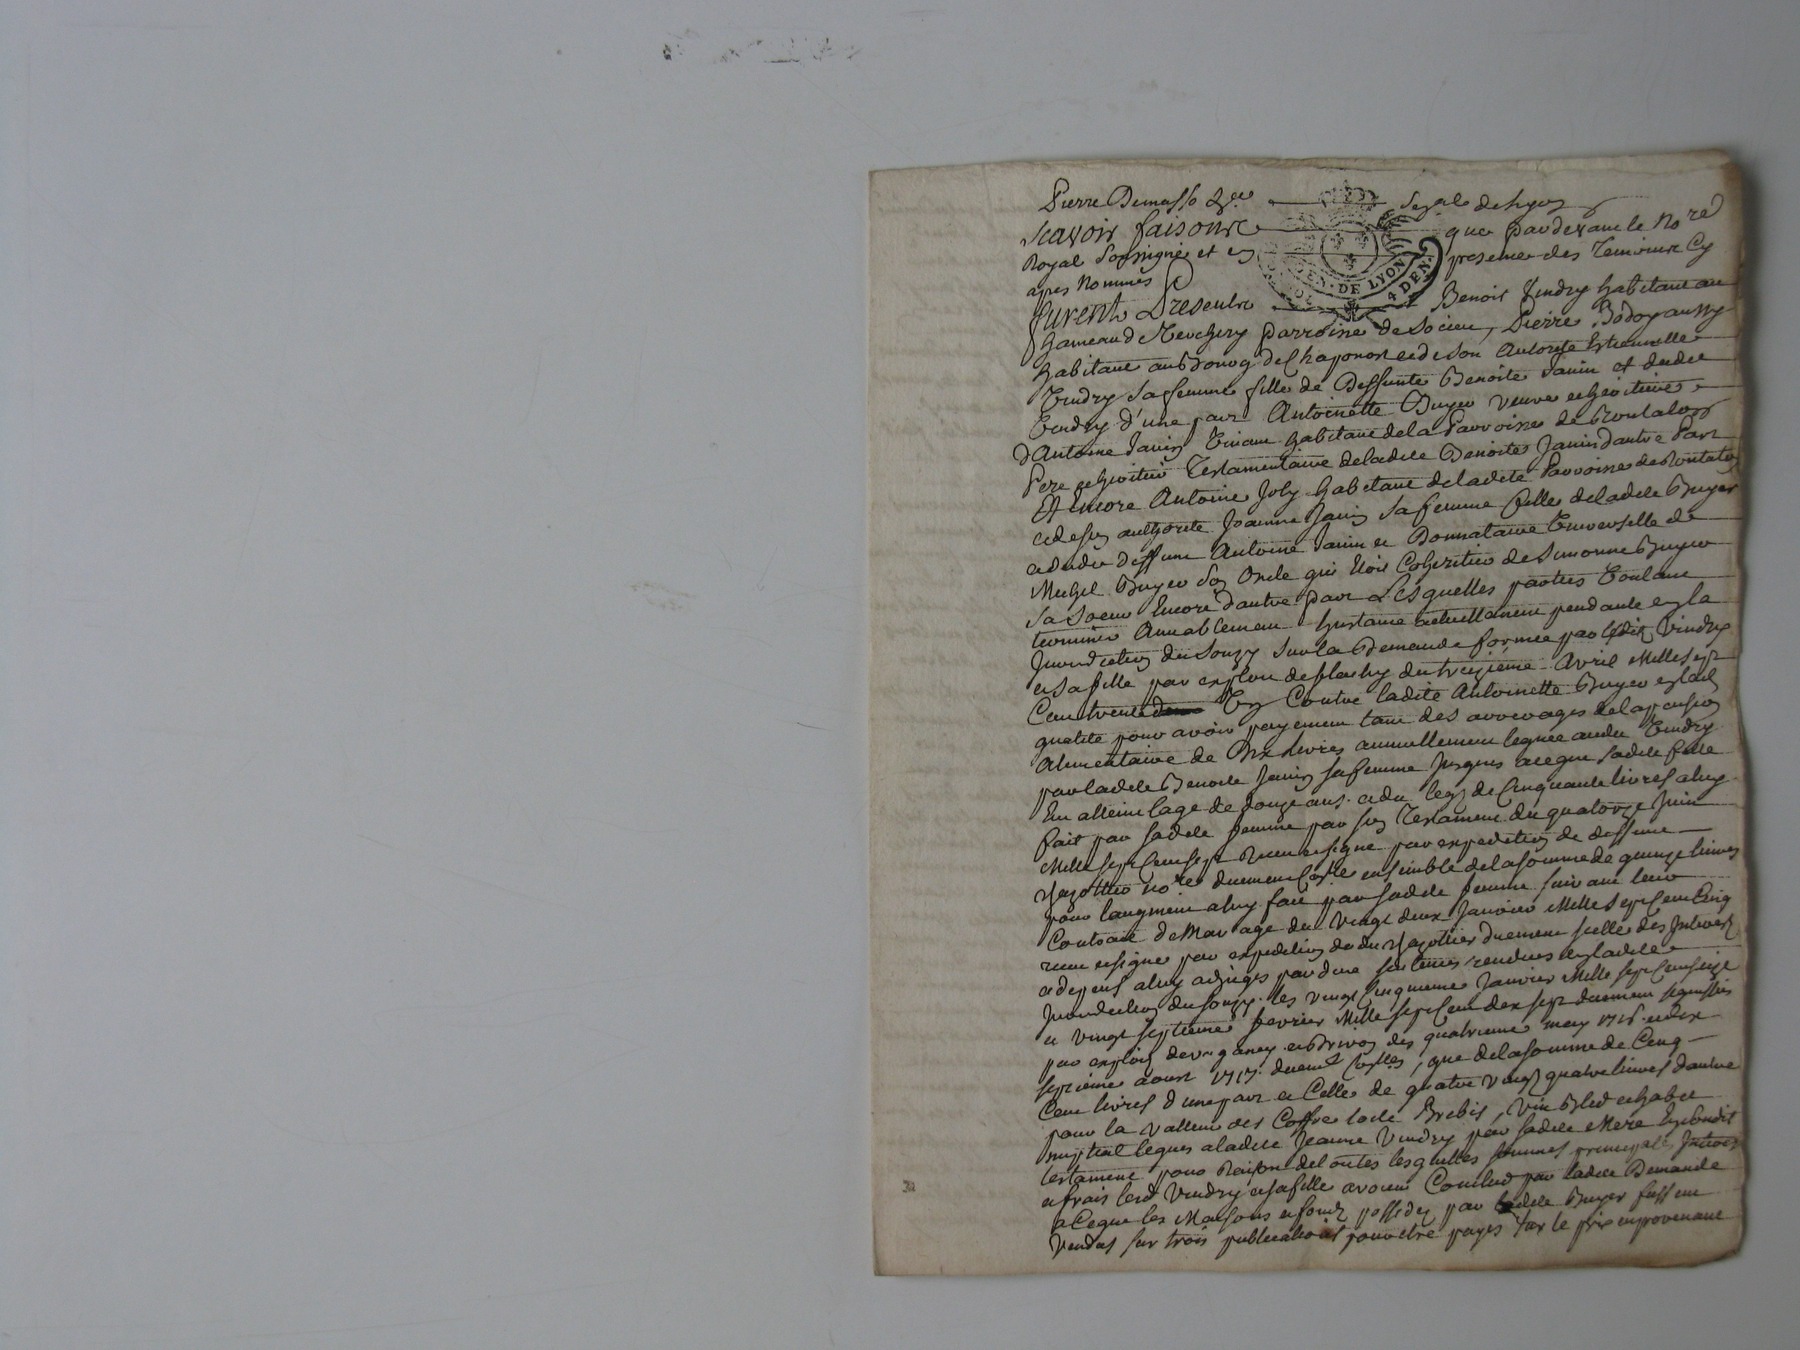 Pierre Dumasso &ce Segal de lyon
Scavoir faisons que pardevant le No.re
Royal Soussigné et en presence des Temoins Cy
apres Nommés
GEN. DE LYON
4 DEN.
furent Presents Benoit Vindry habitant au
hameau de parroisse de Socieu, Pierre Bodoy aussy
habitant au Bourg de Chaponost et de son Autorité Estiennette
Vindry sa femme fille de Deffunte Benoite Janin et dudit
Vindry d'une part Antoinette Buyer veuve et heritiere
d'Antoine Janin Vivant habitant de la Parroisse de Rontalon
Pere et heritier Testamentaire de ladite Benoite Janin d'autre Part
Et encore Antoine Joly habitant de ladite Parroisse de Rontalon
et de son authorité Jeanne Janin sa femme fille de ladite Buyer
et dudit deffunt Antoine Janin et Donnataire Universelle de
Michel Buyer son Oncle qui Etoit Coheritier de Simonne Buyer
Sa Soeur Encore d'autre part Lesquelles parties Voulant
terminer Amiablement Linstance actuellement pendante en la
Jurisdiction du Souzy sur la Demande formée par ledit Vindry
et sa fille par exploit de du treizième Avril Mille sept
Cent trente Un Contre ladite Antoinette Buyer en lad.
qualité pour avoir payement tant des arrerages de la pension
Alimentaire de Dix livres annuellement leguée audit Vindry
par ladite Benoite Janin sa femme Jusques a ce que sadite fille
Eut atteint lage de douze ans. et du legs de Cinquante livres a luy
fait par sadite femme par son Testament du quatorze Juin
Mille sept Cent sept Receu et signé par expedition de deffunt
No.re duement Con.lé ensemble de la somme de quinze livres
pour laugment a luy fait par sadite femme suivant leur
Contrat de Mariage du Vingt deux Janvier Mille sept Cent Cinq
receu et signé par expedition dudit duement scellé des Interests
et depens a luy adjugés par deux sentences rendues en ladite
Jurisdiction du Souzy les vingt Cinquieme Janvier Mille sept Cent seize
et vingt septieme fevrier Mille sept Cent dix sept duement signiffiées
par exploits de et Brivon des quatrieme may 1716. et dix
septieme aoust 1717. duem.t Con.llés, que de la somme de Cinq
Cent livres d'une part et Celle de quatre vingt quatre livres d'autre
pour la valleur des Coffre toile Brebis, Vin Bled et habit
nuptial legués a ladite Jeanne Vindry par sadite Mere En sondit
testament pour Raison de toutes lesquelles sommes principales Interests
et frais lesd. Vindry et sa fille avoient Conclud par ladite Demande
a Ceque les Maisons et fonds possedez par ladite Buyer fussent
Vendus sur trois publications pour etre payés sur le prix en provenant